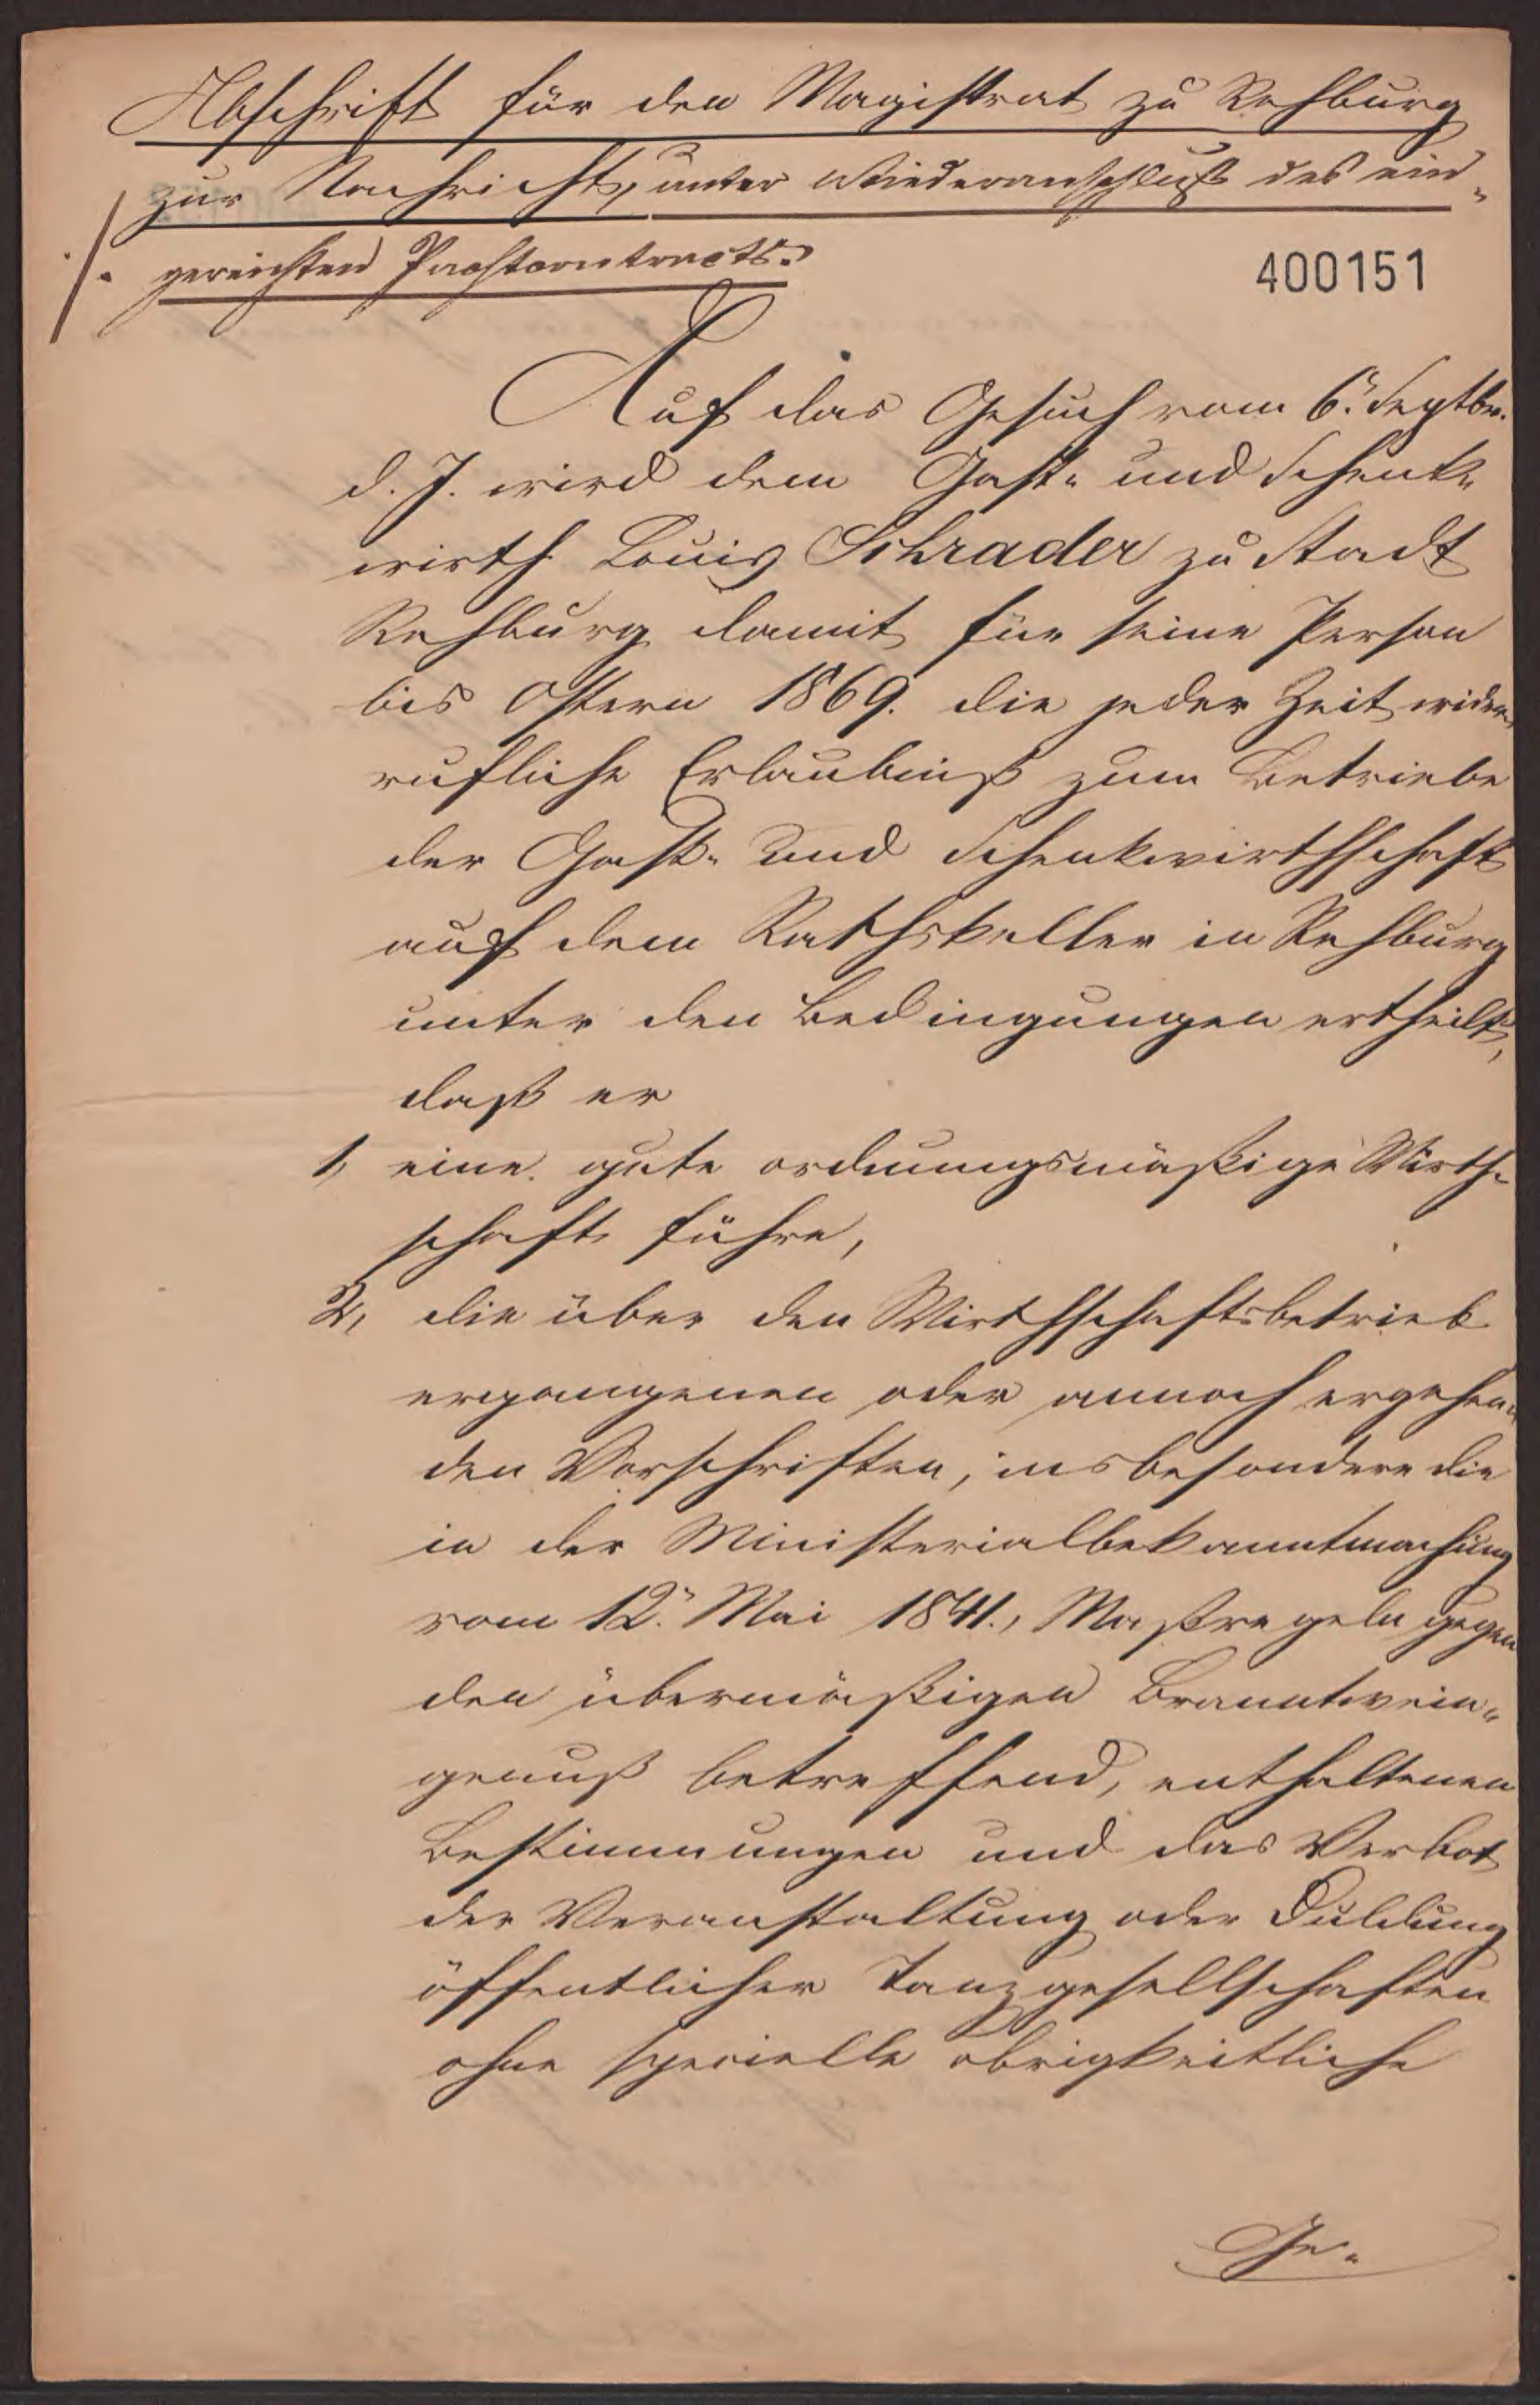 Abschrift für den Magistrat zu Rehburg
zur Nachricht, unter Wiederanschluß des ein-
./. gereichten Pachtcontracts.
400151
Auf das Gesuch vom 6. Septbr.
d. J. wird dem Gast- und Schenk-
wirth Louis Schrader zu Stadt
Rehburg damit für seine Person
bis Ostern 1869. die jeder Zeit wider-
rufliche Erlaubniß zum Betriebe
der Gast- und Schenkwirthschaft
auf dem Rathskeller in Rehburg
unter den Bedingungen ertheilt,
daß er
1, eine gute ordnungsmäßige Wirth-
schaft führe,
2, die über den Wirthschaftsbetrieb
ergangenen oder annoch ergehen-
den Vorschriften, insbesondere die
in der Ministerialbekanntmachung
vom 12. Mai 1841., Maßregeln gegen
den übermäßigen Branntwein-
genuß betreffend, enthaltenen
Bestimmungen und das Verbot
der Veranstaltung oder Duldung
öffentlicher Tanzgesellschaften
ohne specielle obrigkeitliche
Ge-